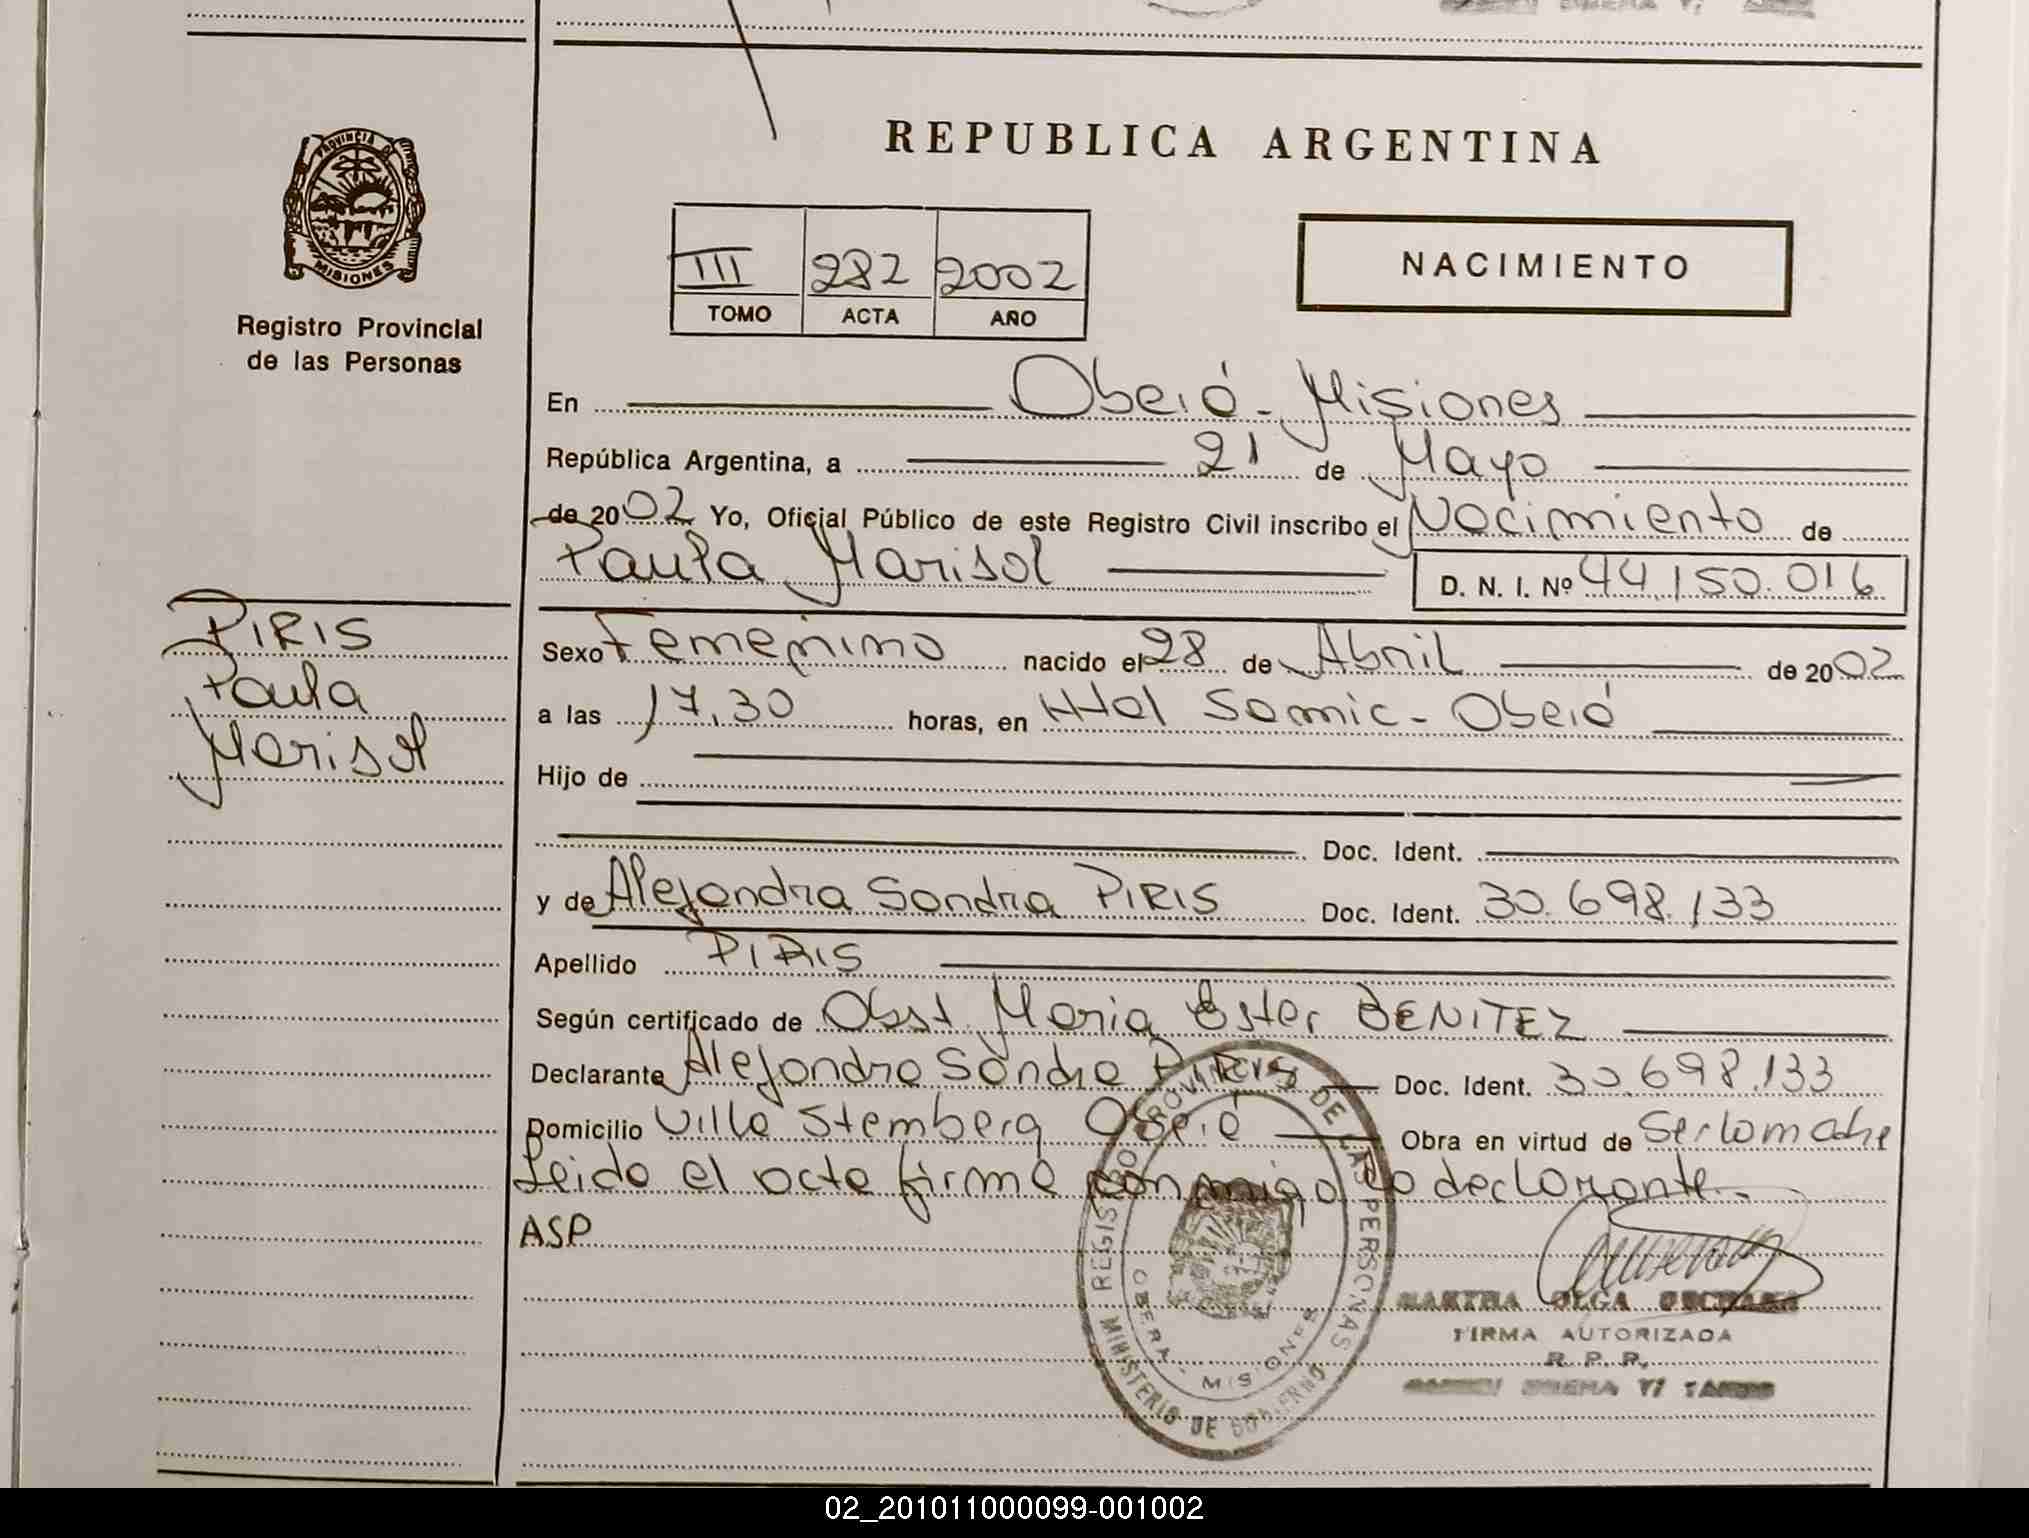 REPUBLICA ARGENTINA
PROVINCIA DE
MISIONES
Registro Provincial
de las Personas
III 282 2002
TOMO ACTA AÑO
NACIMIENTO
En Oberá - Misiones
República Argentina, a 21 de Mayo
de 2002 Yo, Oficial Público de este Registro Civil inscribo el Nacimiento de
Paula Marisol
D. N. I. Nº 44.150.016
PIRIS
Paula
Marisol
Sexo Femenino nacido el 28 de Abril de 2002
a las 17,30 horas, en Htal Samic - Oberá
Hijo de
Doc. Ident.
y de Alejandra Sandra PIRIS Doc. Ident. 30.698.133
Apellido PIRIS
Según certificado de Obst. Maria Ester BENITEZ
Declarante Alejandra Sandra PIRIS Doc. Ident. 30.698.133
Domicilio Villa Stemberg Oberá Obra en virtud de Ser la madre
Leida el acta firma conmigo la declarante.
ASP
REGISTRO PROVINCIAL DE LAS PERSONAS
MINISTERIO DE GOBIERNO
OBERA - MISIONES
MARTHA OLGA
FIRMA AUTORIZADA
R. P. P.
02_201011000099-001002